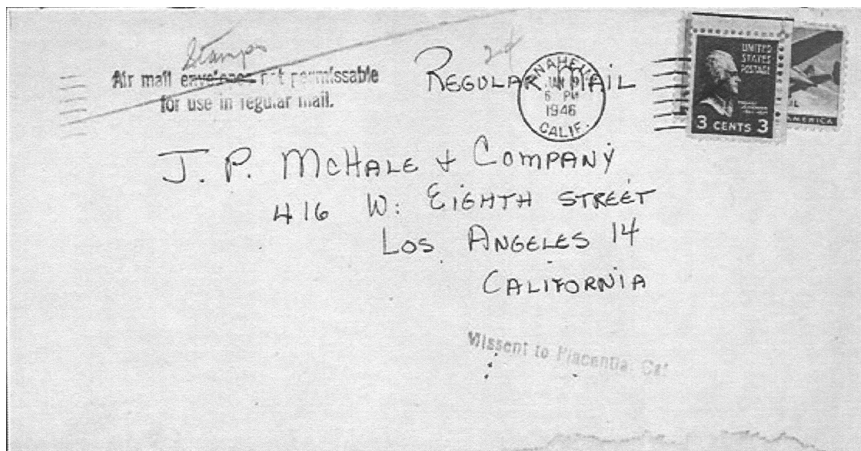 Stamps
Air mail envelopes not permissable
for use in regular mail.
REGULAR MAIL
ANAHEIM
6 PM
1946
CALIF.
UNITED
STATES
POSTAGE
3 CENTS 3
AMERICA
J. P. McHALE + COMPANY
416 W. EIGHTH STREET
LOS ANGELES 14
CALIFORNIA
Missent to Placentia, Cal